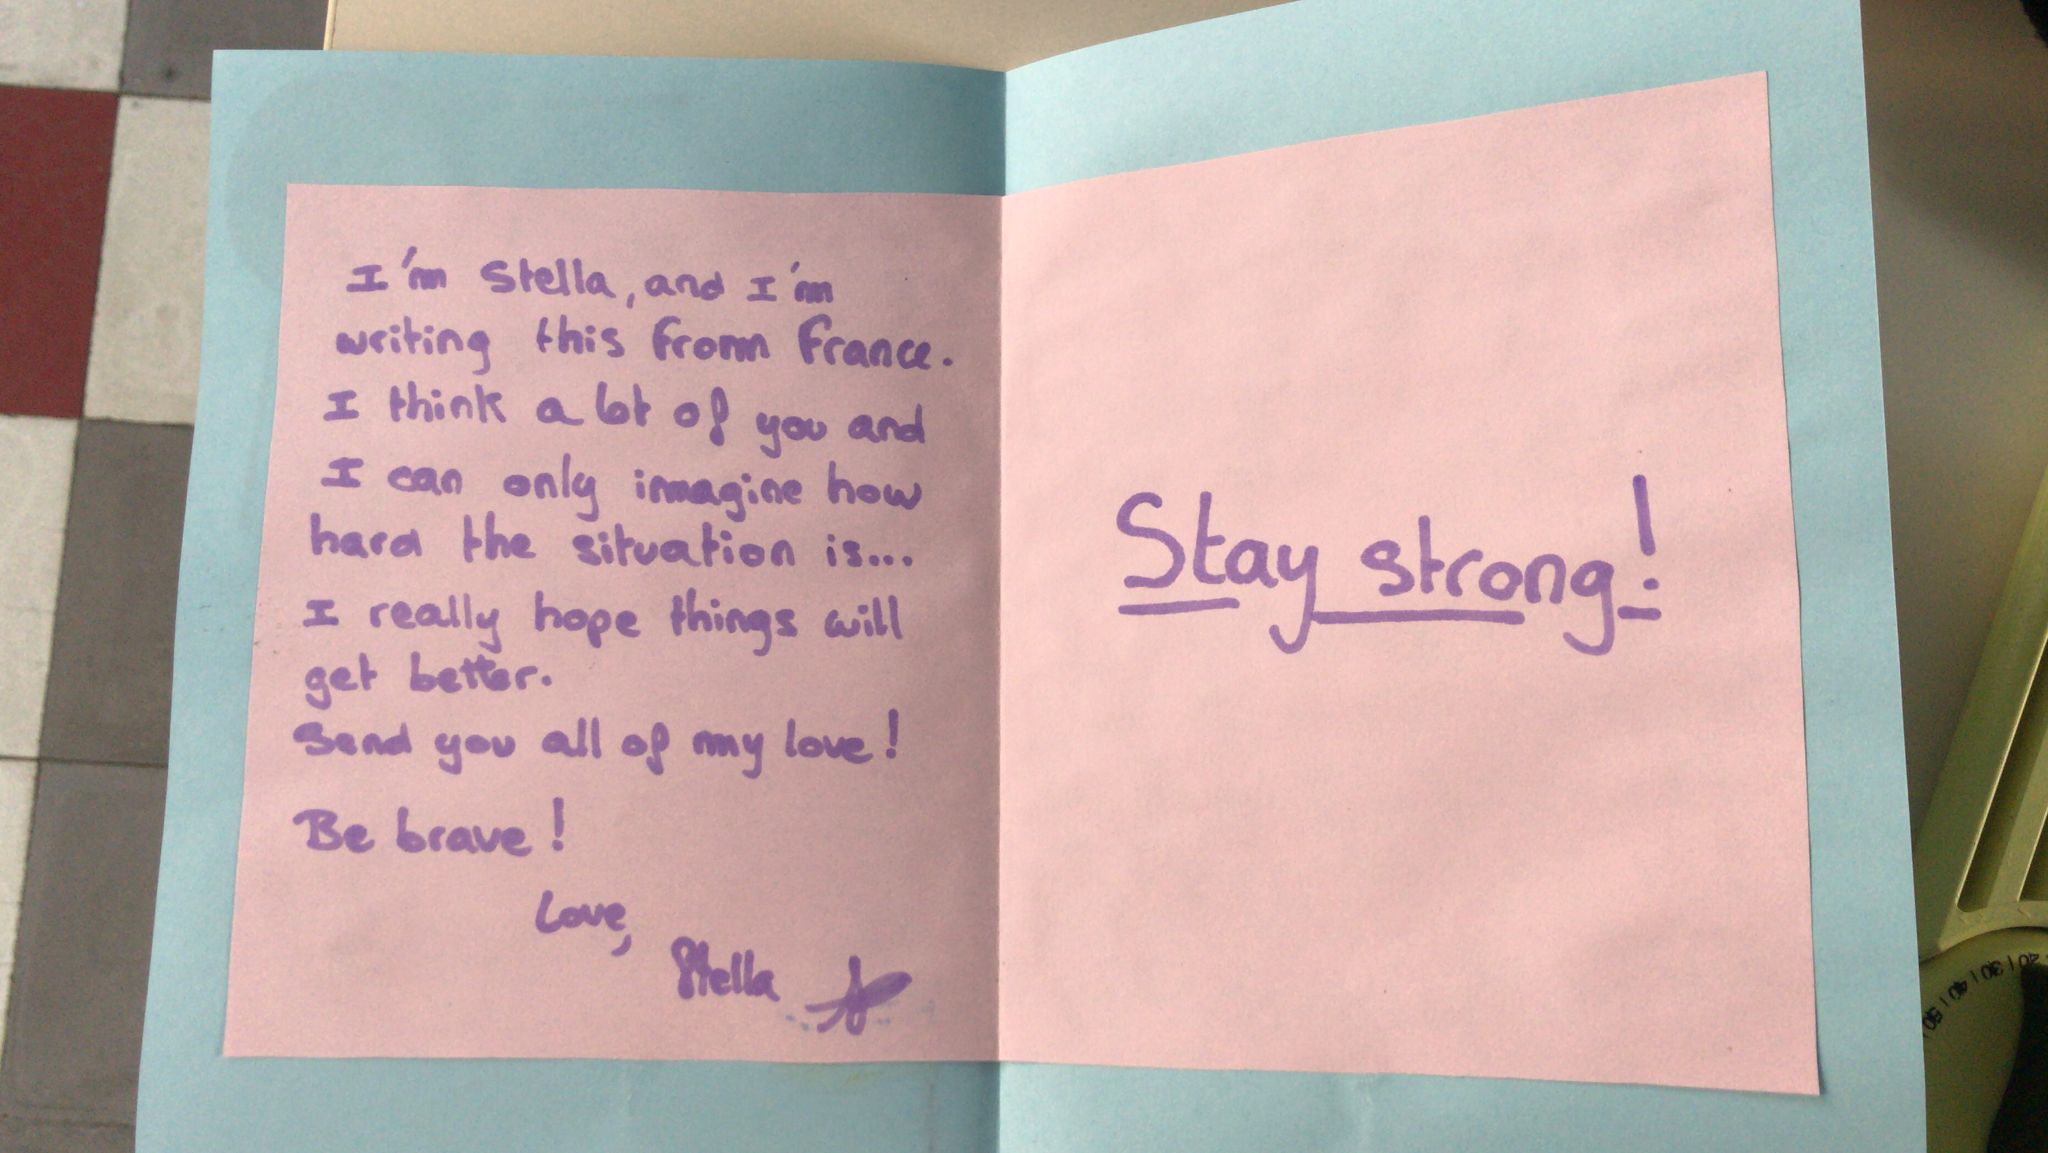 I'm Stella, and I'm
writing this from France.
I think a lot of you and
I can only imagine how
hard the situation is...
I really hope things will
get better.
Send you all of my love!
Be brave!
Love,
Stella
Stay strong!
20 | 30 | 40 | 50